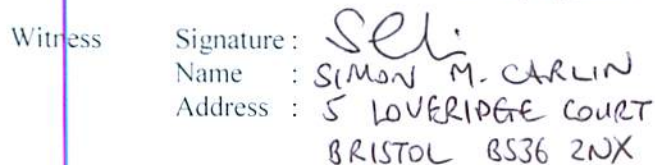 Witness Signature :
Name : SIMON M. CARLIN
Address : 5 LOVERIDGE COURT
BRISTOL BS36 2NX